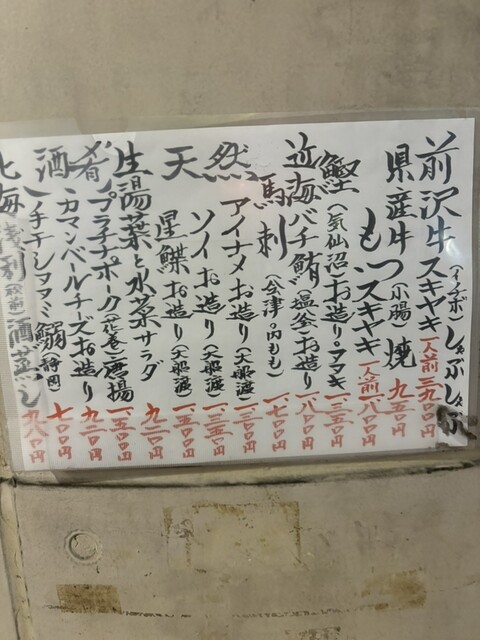 前沢牛スキヤキ（イチボ）しゃぶしゃぶ 一人前二九〇〇円
県産牛もつ（小腸）焼 九五〇円
もつスキヤキ 一人前一、八〇〇円
鰹（気仙沼）お造り・タタキ 一、三五〇円
近海バチ鮪（塩釜）お造り 一、八〇〇円
馬刺（会津・内もも） 一、七〇〇円
天然
アイナメお造り（大船渡）
ソイお造り（大船渡） 一、三五〇円
星鰈お造り（大船渡） 一、五〇〇円
生湯葉と水菜サラダ 九二〇円
プラチナポーク（花巻）唐揚 一、五〇円
カマンベールチーズお造り 九二〇円
酒肴
イチチシラタミ鰯（静岡） 七〇〇円
北海浅利 酒蒸し 九八〇円